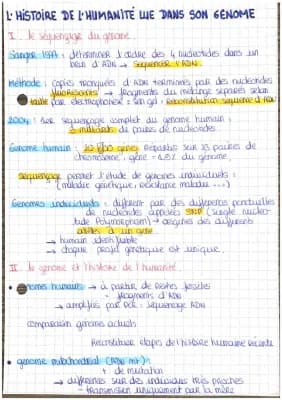 L'HISTOIRE DE L'HUMANITÉ LUE DANS SON GENOME
I. le séquençage du génome.
Sanger 1977 : déterminer l'ordre des 4 nucléotides dans un
brin d'ADN → Séquencer l'ADN.
Méthode : copies tronquées d'ADN terminées par des nucléotides
fluorescents → fragments du mélange séparés selon
taille par électrophorèse : son gel. Reconstitution séquence d'ADN
2004 : 1er séquençage complet du génome humain :
3 milliards de paires de nucléotides.
Génome humain : 20 000 gènes répartis sur 23 paires de
chromosomes, gène = 1,5% du génome
séquençage permet l'étude de génomes individuels :
(maladie génétique, résistance maladie ...)
Génomes individuels : diffèrent par des différences ponctuelles
de nucléotides appelées SNP (Single nucleo-
tide Polymorphism) → origines des différents
allèles d'un gène.
→ humain identifiable
→ chaque profil génétique est unique.
II. le génome et l'histoire de l'humanité.
nomes humains → à partir de restes fossiles
- fragments d'ADN
→ amplifiés par PCR. séquençage ADN
comparaison génomes actuels
Reconstituer étapes de l'histoire humaine récente
• génome mitochondrial (ADN mt) :
+ de mutation
→ différences sur des individus très proches
- transmission uniquement par la mère